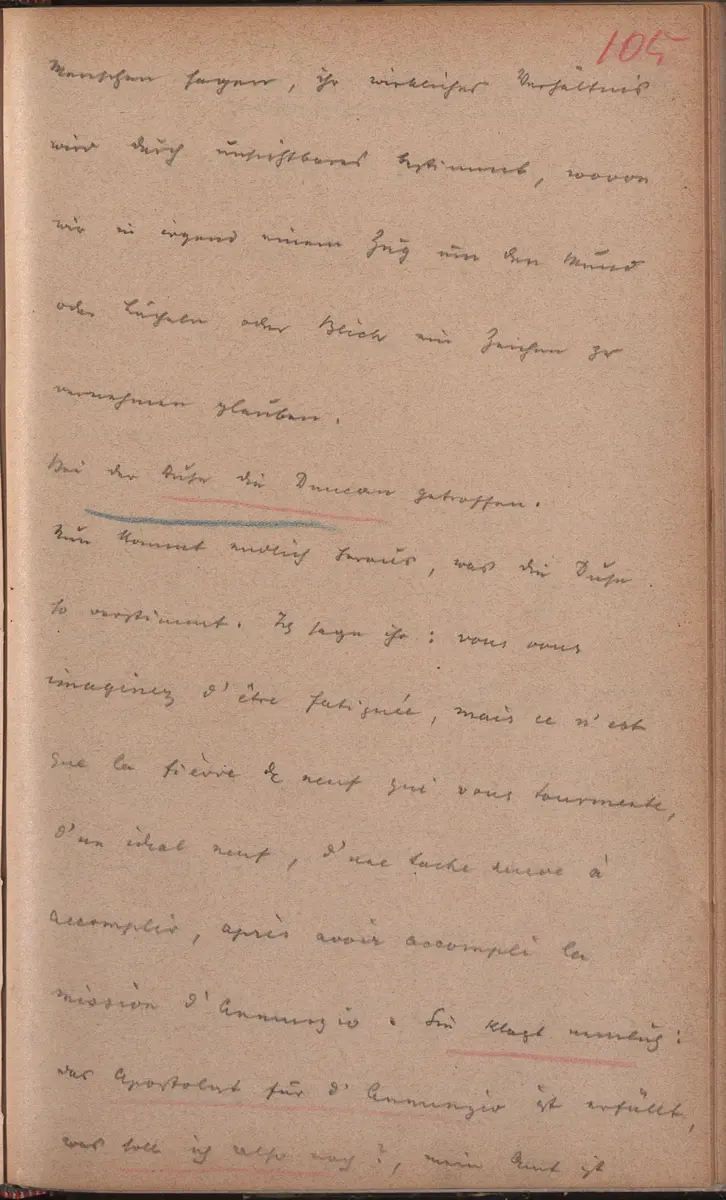 105
Menschen sagen, ihr wirkliches Verhältnis
wird durch unsichtbares bestimmt, wovon
wir in irgend einem Zug um den Mund
oder Lächeln oder Blick ein Zeichen zu
vernehmen glauben.
Bei der Duse die Duncan getroffen.
Nun kommt endlich heraus, was die Duse
so verstimmt. Ich sage ihr: vous vous
imaginez d'être fatiguée, mais ce n'est
que la fièvre de neuf qui vous tourmente,
d'un idéal neuf, d'une tache neuve à
accomplir, après avoir accompli la
mission d'Annunzio. Sie klagt nemlich:
das Apostolat für d'Annunzio ist erfüllt,
was soll ich also noch?, mein Amt ist